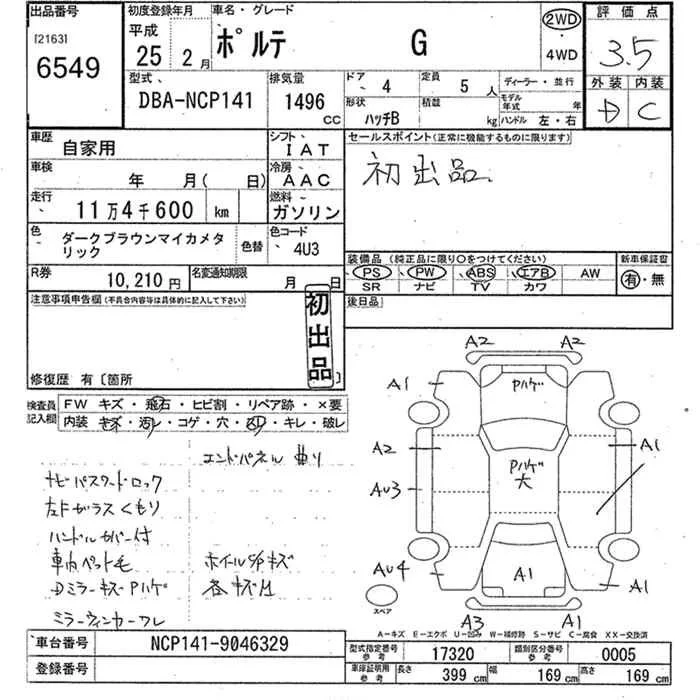 出品番号
[2163]
6549
初度登録年月
平成
25年 2月
車名・グレード
ポルテ G
2WD
・
4WD
評価点
3.5
外装 内装
D C
型式
DBA-NCP141
排気量
1496
CC
ドア 4
定員 5 人
形状 ハッチB
積載 kg
ディーラー・並行
モデル年式 年
ハンドル 左・右
車歴 自家用
シフト IAT
車検 年 月( 日)
冷房 AAC
走行 11万4千600 km
燃料 ガソリン
色 ダークブラウンマイカメタリック
色替
色コード 4U3
R券 10,210円
名変通知期限 月 日
セールスポイント(正常に機能するものに限ります)
初出品.
装備品(純正品に限り○をつけてください)
新車保証書
PS PW ABS エアB AW
SR ナビ TV カワ
有・無
後日品
注意事項申告欄(不具合内容等は具体的に記入して下さい)
初出品
修復歴 有〔箇所 〕
検査員記入欄
FW キズ・飛石・ヒビ割・リペア跡・×要
内装 キズ・汚レ・コゲ・穴・スリ・キレ・破レ
エンドパネル曲り
ナビパスワードロック
左Fガラスくもり
ハンドルカバー付
車内ペット毛
ホイールS/Pキズ
DミラーキズPハゲ
各キズ凹
ミラーウィンカーワレ
A2 A2
A1 Pハゲ
A2 A1
Pハゲ
大
AU3
AU4 A1 A1
スペア
A3 A1
A-キズ E-エクボ U-凹み W-補修跡 S-サビ C-腐食 XX-交換済
車台番号 NCP141-9046329
登録番号
型式指定番号参考 17320
類別区分番号参考 0005
車庫証明用参考 長さ 399cm 幅 169cm 高さ 169cm